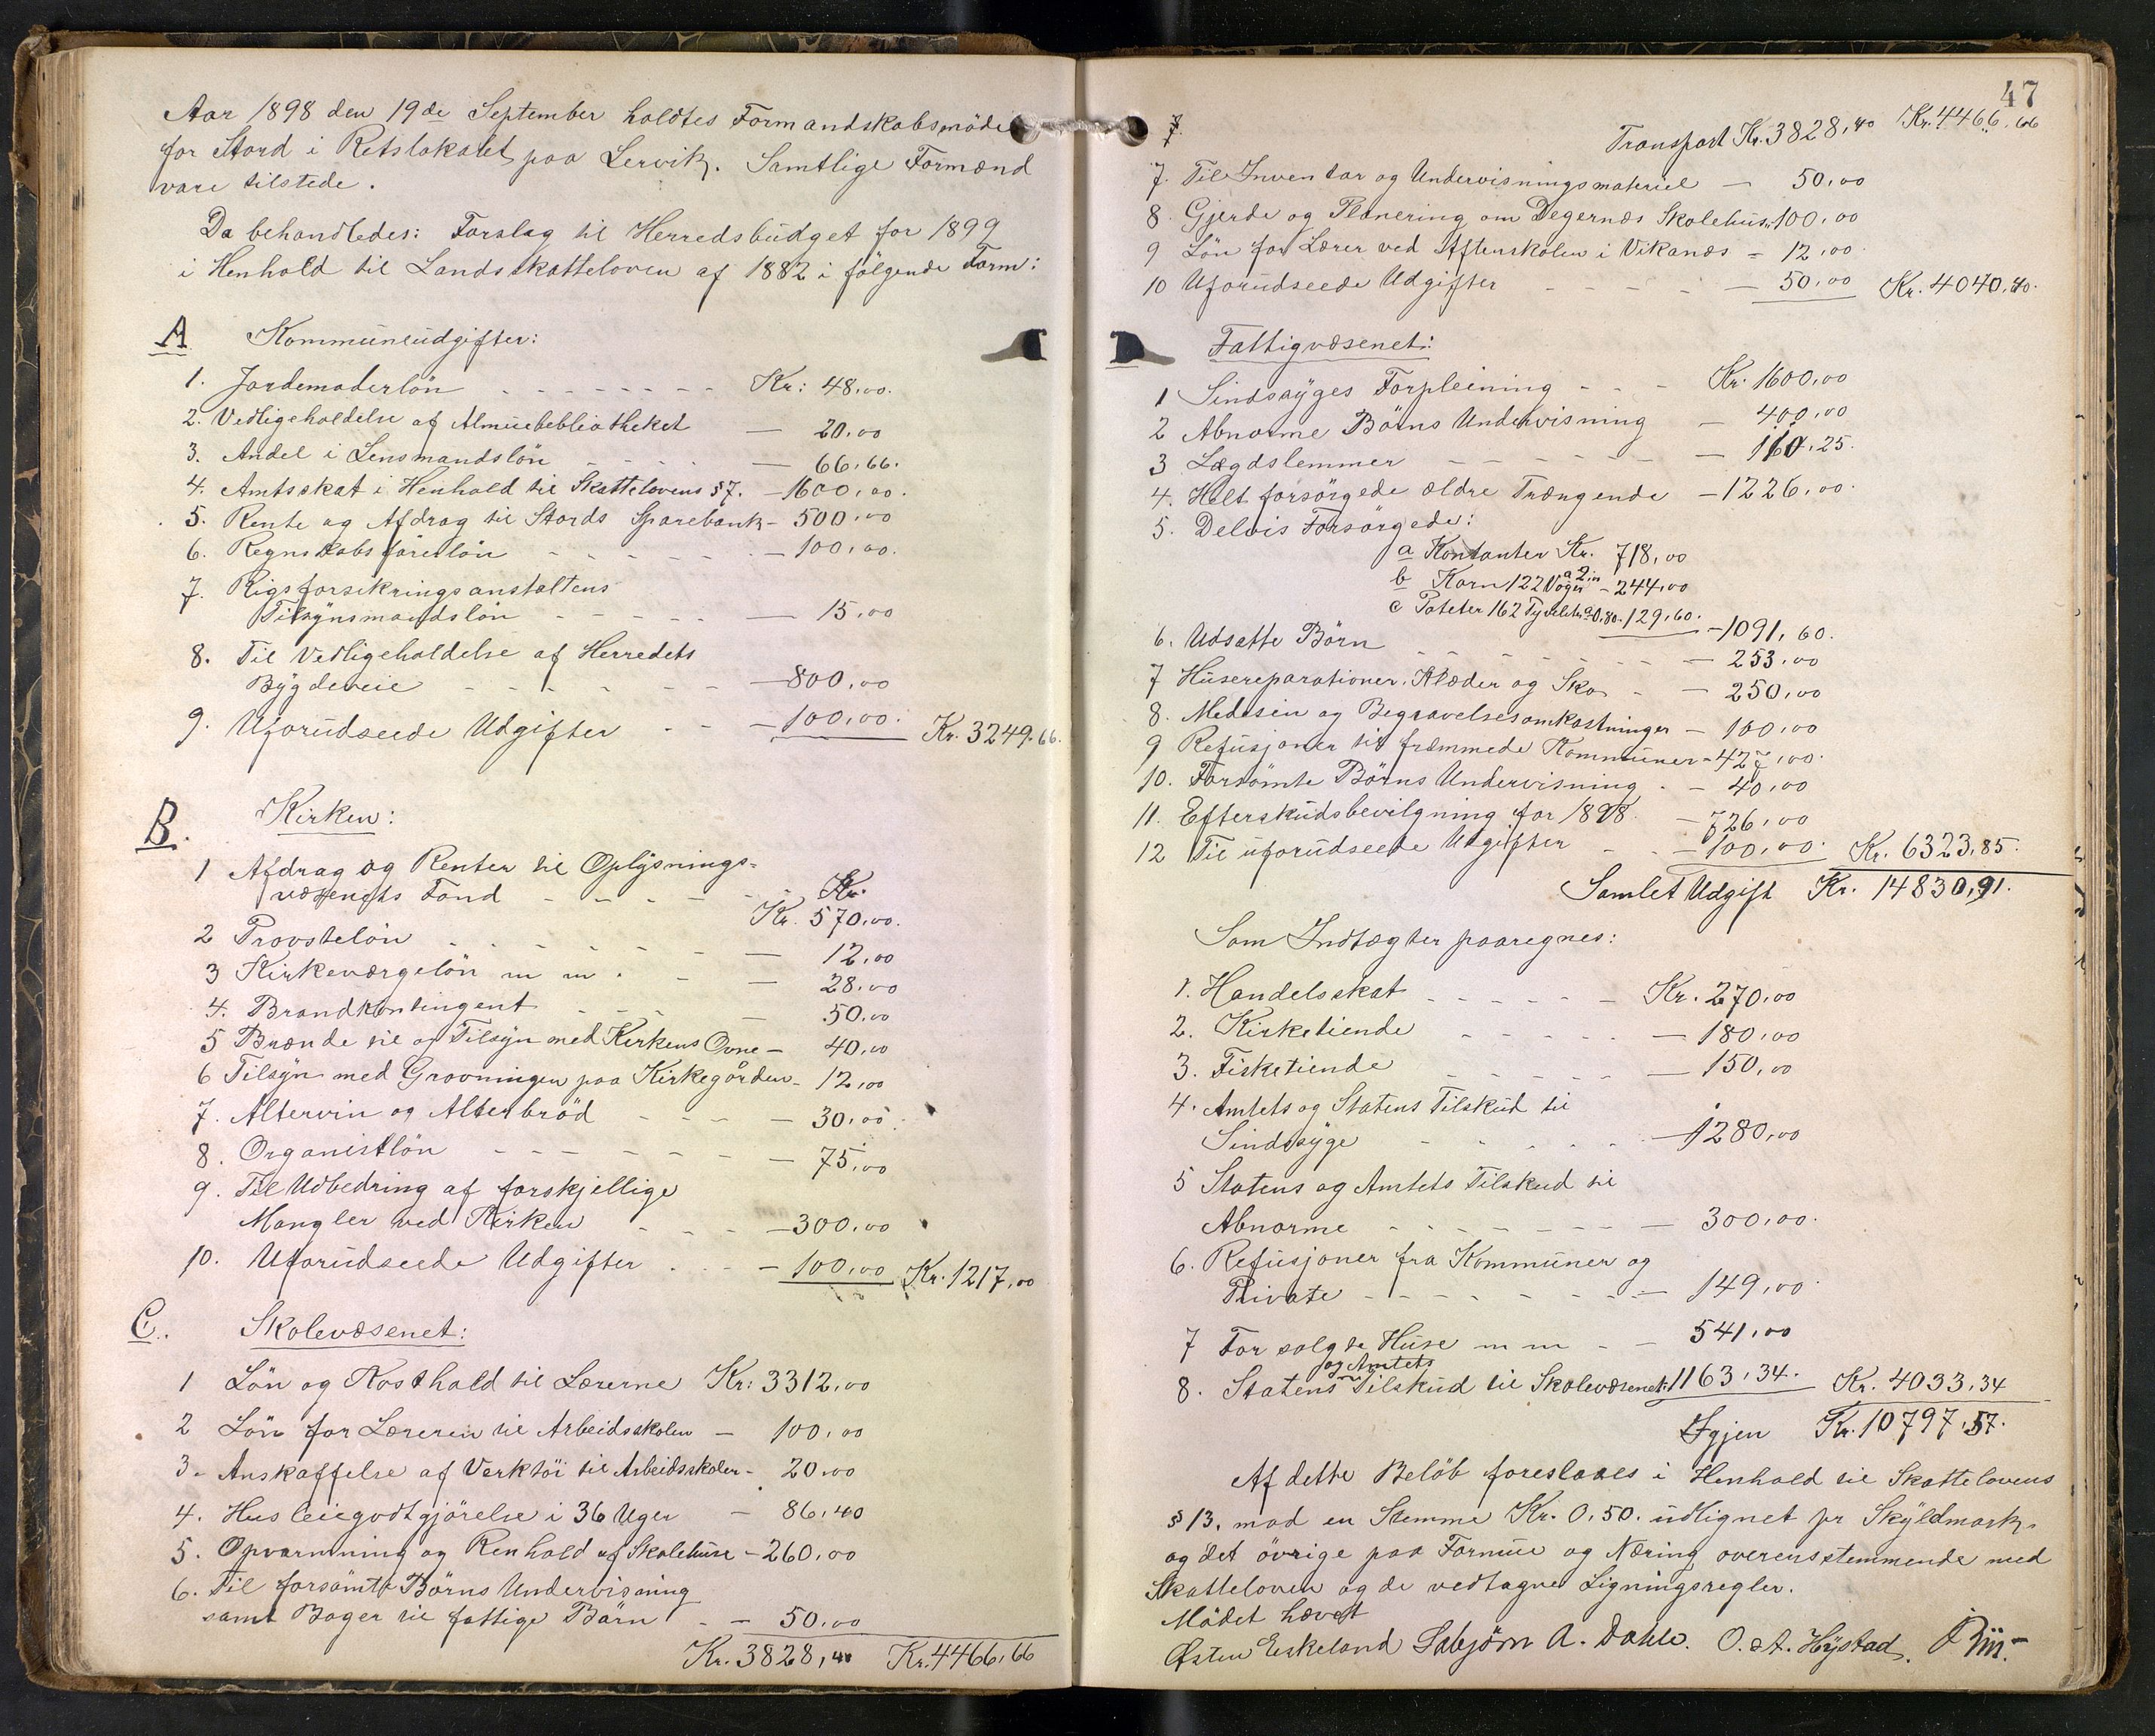 Aar 1898 den 19de September holdtes Formandskabsmöde
for Stord i Retslokalet paa Lervik. Samtlige Formænd
vare tilstede.
Da behandledes: Forslag til Herredsbudget for 1899
i Henhold til Landsskatteloven af 1882 i fölgende Form:
A Kommuneudgifter:
1. Jordemoderlön - - - - - - - Kr: 48,00.
2. Vedligeholdelse af Almuebebliotheket — 20,00
3. Andel i Lensmandslön - - - - — 66,66.
4. Amtsskat i Henhold til Skattelovens § 7. — 1600,00.
5. Rente og Afdrag til Stords Sparebank - 500,00
6. Regnskabsförerlön - - - - - - 100,00.
7. Rigsforsikringsanstaltens
Tilsynsmandslön - - - - - — 15,00
8. Til Vedligeholdelse af Herredets
Bygdeveie - - - - - - - — 800,00
9. Uforudseede Udgifter - - — 100,00. Kr. 3249.66.
B. Kirken:
1 Afdrag og Renter til Oplysnings-
væsenets Fond - - - - - - Kr.
Kr. 570,00.
2 Provstelön - - - - - - — 12,00
3 Kirkeværgelön m m. - — 28,00
4. Brandkontingent - - - — 50,00
5 Brænde til og Tilsyn med Kirkens Ovne — 40,00
6 Tilsyn med Grovningen paa Kirkegården - 12,00
7. Altervin og Alterbröd - - - — 30,00.
8. Organistlön - - - - - - - — 75,00
9. Til Udbedring af forskjellige
Mangler ved Kirken - - - — 300,00
10. Uforudseede Udgifter . - - — 100,00 Kr. 1217,00
C. Skolevæsenet:
1 Lön og Kosthold til Lærerne Kr: 3312,00
2 Lön for Læreren til Arbeidsskolen — 100,00
3. Anskaffelse af Verktöi til Arbeidsskolen - 20,00
4. Husleiegodtgjörelse i 36 Uger — 86,40
5. Opvarmning og Renhold af Skolehuse - 260,00
6. Til forsömte Börns Undervisning
samt Bøger til fattige Börn - — 50,00
Kr. 3828,40 Kr. 4466,66
47
Transport Kr. 3828,40 Kr. 4466,66
7. Til Inventar og Undervisningsmateriel — 50,00
8. Gjerde og Planering om Degernæs Skolehus „ 100,00
9 Lön for Lærer ved Aftenskolen i Vikanæs - 12,00.
10 Uforudseede Udgifter - - - - — 50,00 Kr. 4040,40.
Fattigvæsenet:
1 Sindssyges Forpleining - - - Kr. 1600,00
2 Abnorme Börns Undervisning — 400,00
3 Lægdslemmer - - - - - - — 160,25.
4. Helt forsörgede ældre Trængende — 1226,00.
5. Delvis Forsörgede:
a Kontanter Kr. 718,00
b Korn 122 Voger a 2 - 244,00
c Poteter 162 a 0,80. 129,60. — 1091,60.
6. Udsatte Börn - - - - - - — 253,00
7 Husereparationer, Klæder og Sko - — 250,00
8. Medisin og Begravelsesomkostninger — 100,00
9 Refusjoner til fremmede Kommuner - 427,00.
10. Forsömte Börns Undervisning - — 40,00
11. Efterskudsbevilgning for 1898. — 726,00
12 Til uforudseede Udgifter - - — 100,00. Kr. 6323,85.
Samlet Udgift Kr. 14830,91.
Som Indtægter paaregnes:
1. Handelsskat - - - - - - Kr. 270,00
2. Kirketiende - - - - - — 180,00
3. Fisketiende - - - - - — 150,00
4. Amtets og Statens Tilskud til
Sindssyge - - - - - - — 1280,00
5 Statens og Amtets Tilskud til
Abnorme - - - - - - - — 300,00.
6. Refusjoner fra Kommuner og
Private - - - - - - - — 149,00.
7 For solgte Huse m m - — 541,00
og Amtets
8. Statens Tilskud til Skolevæsenet: 1163,34. Kr. 4033,34
Igjen Kr. 10797,57.
Af dette Belöb foreslaaes i Henhold til Skattelovens
§ 13. mod en Stemme Kr. 0,50. udlignet pr Skyldmark
og det övrige paa Formue og Næring overensstemmende med
Skatteloven og de vedtagne Ligningsregler.
Mödet hævet
Østen Eskeland Sebjörn A. Dahle. O. A. Hystad.